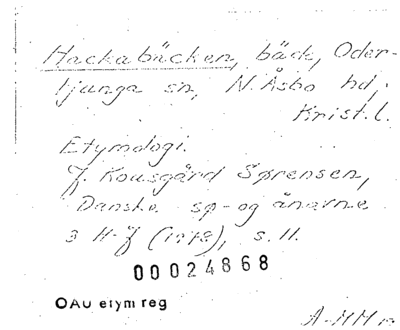 Hackabäcken, bäck, Oder-
ljunga sn, N. Åsbo hd,
Krist. l.
Etymologi.
J. Kousgård Sørensen,
Danske sø- og ånavne
3 H-J (1978), s. 11.
00024868
OAU etym reg
A-MM